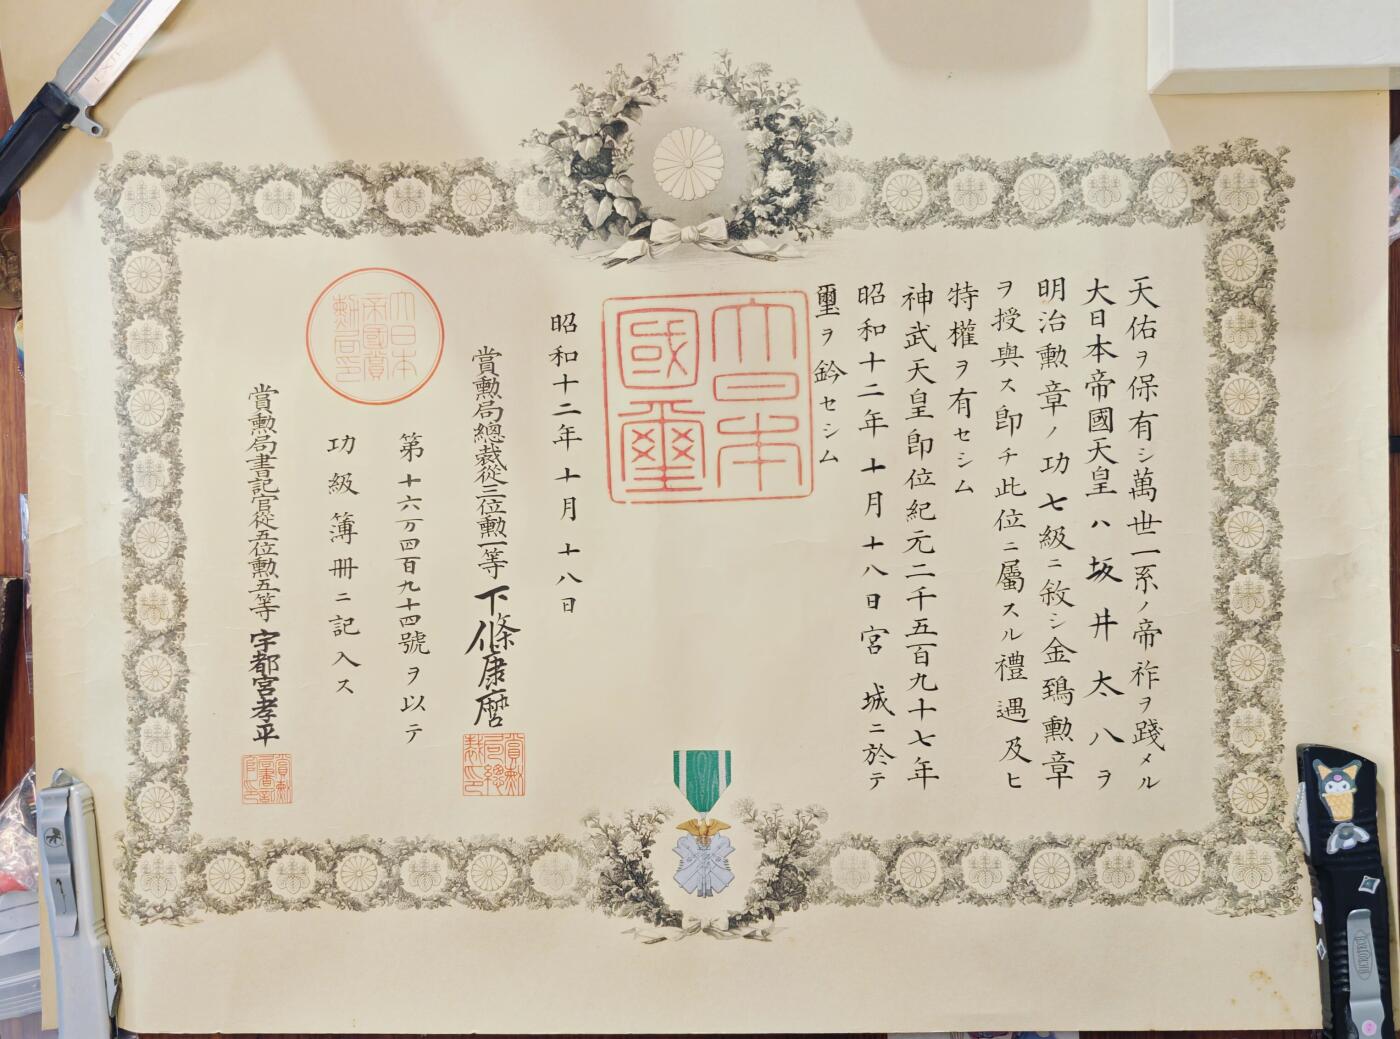 天佑ヲ保有シ萬世一系ノ帝祚ヲ踐メル
大日本帝國天皇ハ坂井太八ヲ
明治勲章ノ功七級ニ敘シ金鵄勲章
ヲ授與ス即チ此位ニ屬スル禮遇及ヒ
特權ヲ有セシム
神武天皇即位紀元二千五百九十七年
昭和十二年十月十八日宮城ニ於テ
璽ヲ鈐セシム
大日本國璽
昭和十二年十月十八日
賞勲局總裁從三位勲一等下條康麿
賞勲局總裁之印
第十六万四百九十四號ヲ以テ
功級簿冊ニ記入ス
大日本帝國賞勲局印
賞勲局書記官從五位勲五等宇都宮孝平